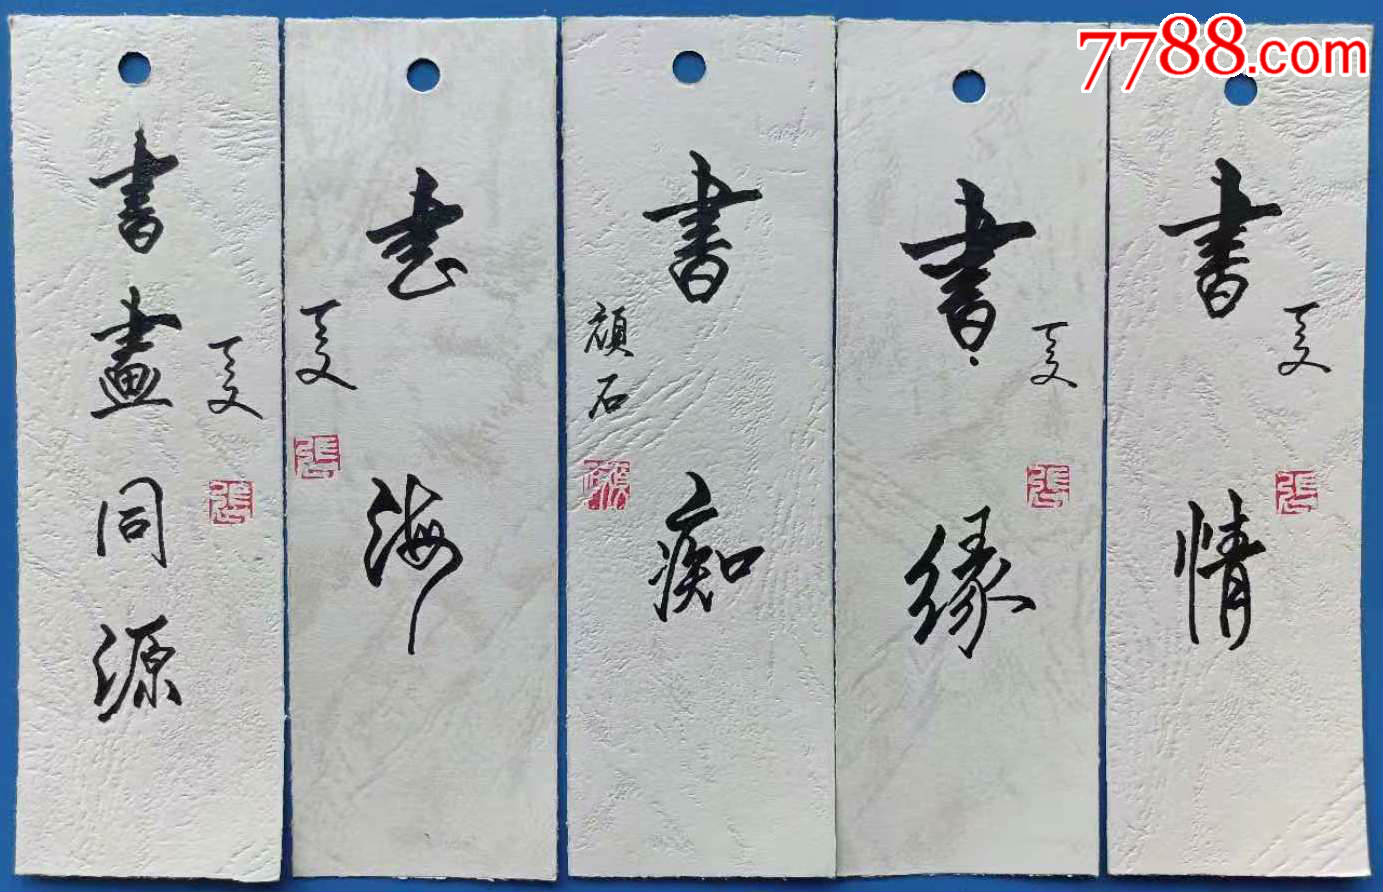 7788.com
書畫同源
張
書海
張
書痴
顔石
書緣
張
書情
張